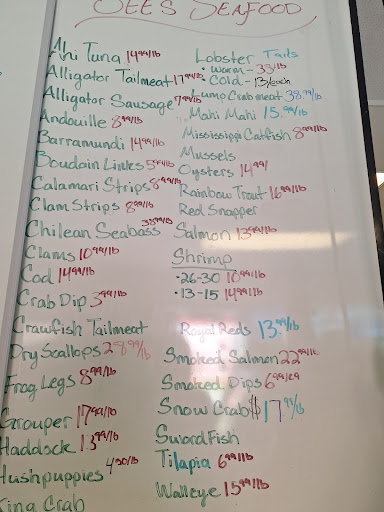 JEE'S SEAFOOD
Ahi Tuna 14⁹⁹/lb
Alligator Tailmeat 17⁹⁹/lb
Alligator Sausage 7⁹⁹/lb
Andouille 8⁹⁹/lb
Barramundi 14⁹⁹/lb
Boudain Links 5⁹⁹/lb
Calamari Strips 8⁹⁹/lb
Clam Strips 8⁹⁹/lb
Chilean Seabass 38⁹⁹/lb
Clams 10⁹⁹/lb
Cod 14⁹⁹/lb
Crab Dip 3⁹⁹/lb
Crawfish Tailmeat
Dry Scallops 28⁹⁹/lb
Frog Legs 8⁹⁹/lb
Grouper 17⁹⁹/lb
Haddock 13⁹⁹/lb
Hushpuppies 4⁵⁰/lb
King Crab
Lobster Tails
• Warm - 33/lb
• Cold - 13/each
Lump Crabmeat 38.⁹⁹/lb
Mahi Mahi 15.⁹⁹/lb
Mississippi Catfish 8⁹⁹/lb
Mussels
Oysters 14⁹⁹/
Rainbow Trout 16⁹⁹/lb
Red Snapper
Salmon 13⁹⁹/lb
Shrimp
• 26-30 10⁹⁹/lb
• 13-15 14⁹⁹/lb
Royal Reds 13.⁹⁹/lb
Smoked Salmon 22⁹⁹/lb
Smoked Dips 6⁹⁹/ea
Snow Crab $17⁹⁹/lb
Swordfish
Tilapia 6⁹⁹/lb
Walleye 15⁹⁹/lb